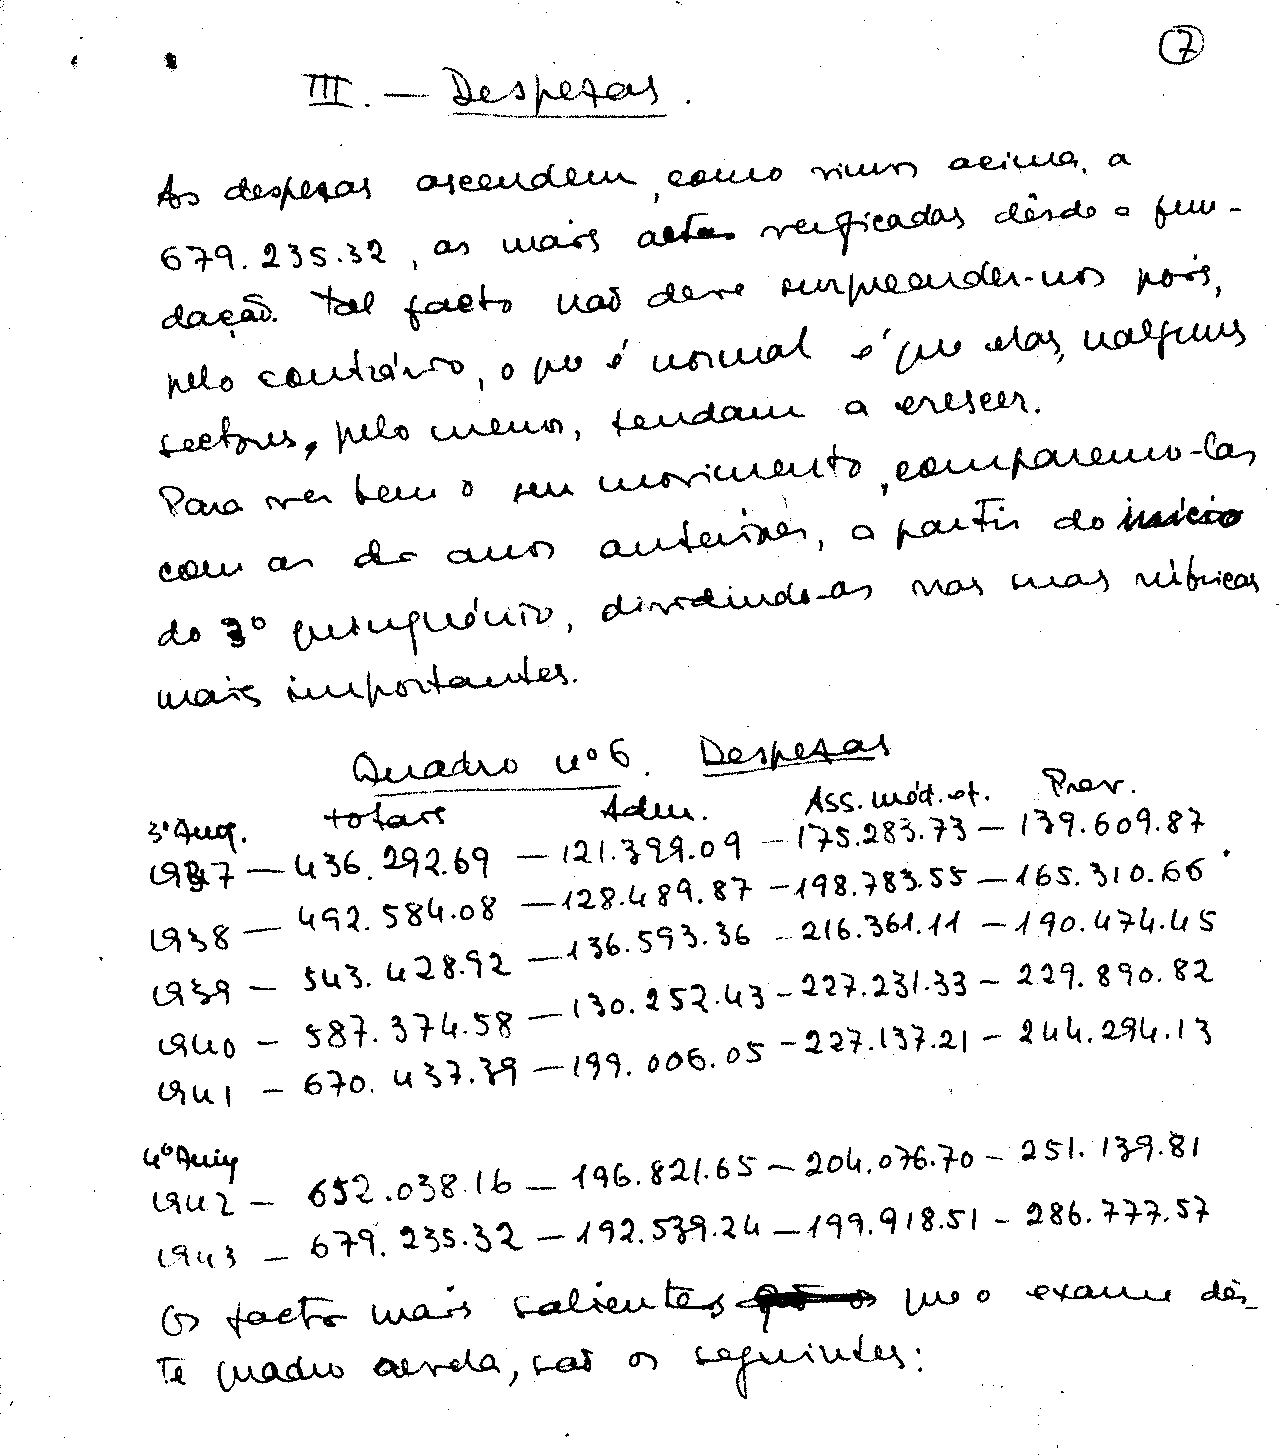 7
III. — Despesas.
As despesas ascendem, como vimos acima, a
679.235.32, as mais altas verificadas dêsde a fun-
dação. Tal facto não deve surpreender-nos pois,
pelo contrário, o que é normal é que elas, nalguns
sectores, pelo menos, tendam a crescer.
Para ver bem o seu movimento, comparemo-las
com as dos anos anteriores, a partir do início
do 3º quinquénio, dividindo-as nas suas rúbricas
mais importantes.
Quadro nº 6. Despesas
3º Quiq. totais Adm. Ass. méd. et. Prev.
1937 — 436.292.69 — 121.399.09 — 175.283.73 — 139.609.87
1938 — 492.584.08 — 128.489.87 — 198.783.55 — 165.310.66
1939 — 543.428.92 — 136.593.36 — 216.361.11 — 190.474.45
1940 — 587.374.58 — 130.252.43 — 227.231.33 — 229.890.82
1941 — 670.437.39 — 199.006.05 — 227.137.21 — 244.294.13
4º Quiq
1942 — 652.038.16 — 196.821.65 — 204.076.70 — 251.139.81
1943 — 679.235.32 — 192.539.24 — 199.918.51 — 286.777.57
Os factos mais salientes que o exame dês-
te quadro revela, são os seguintes: